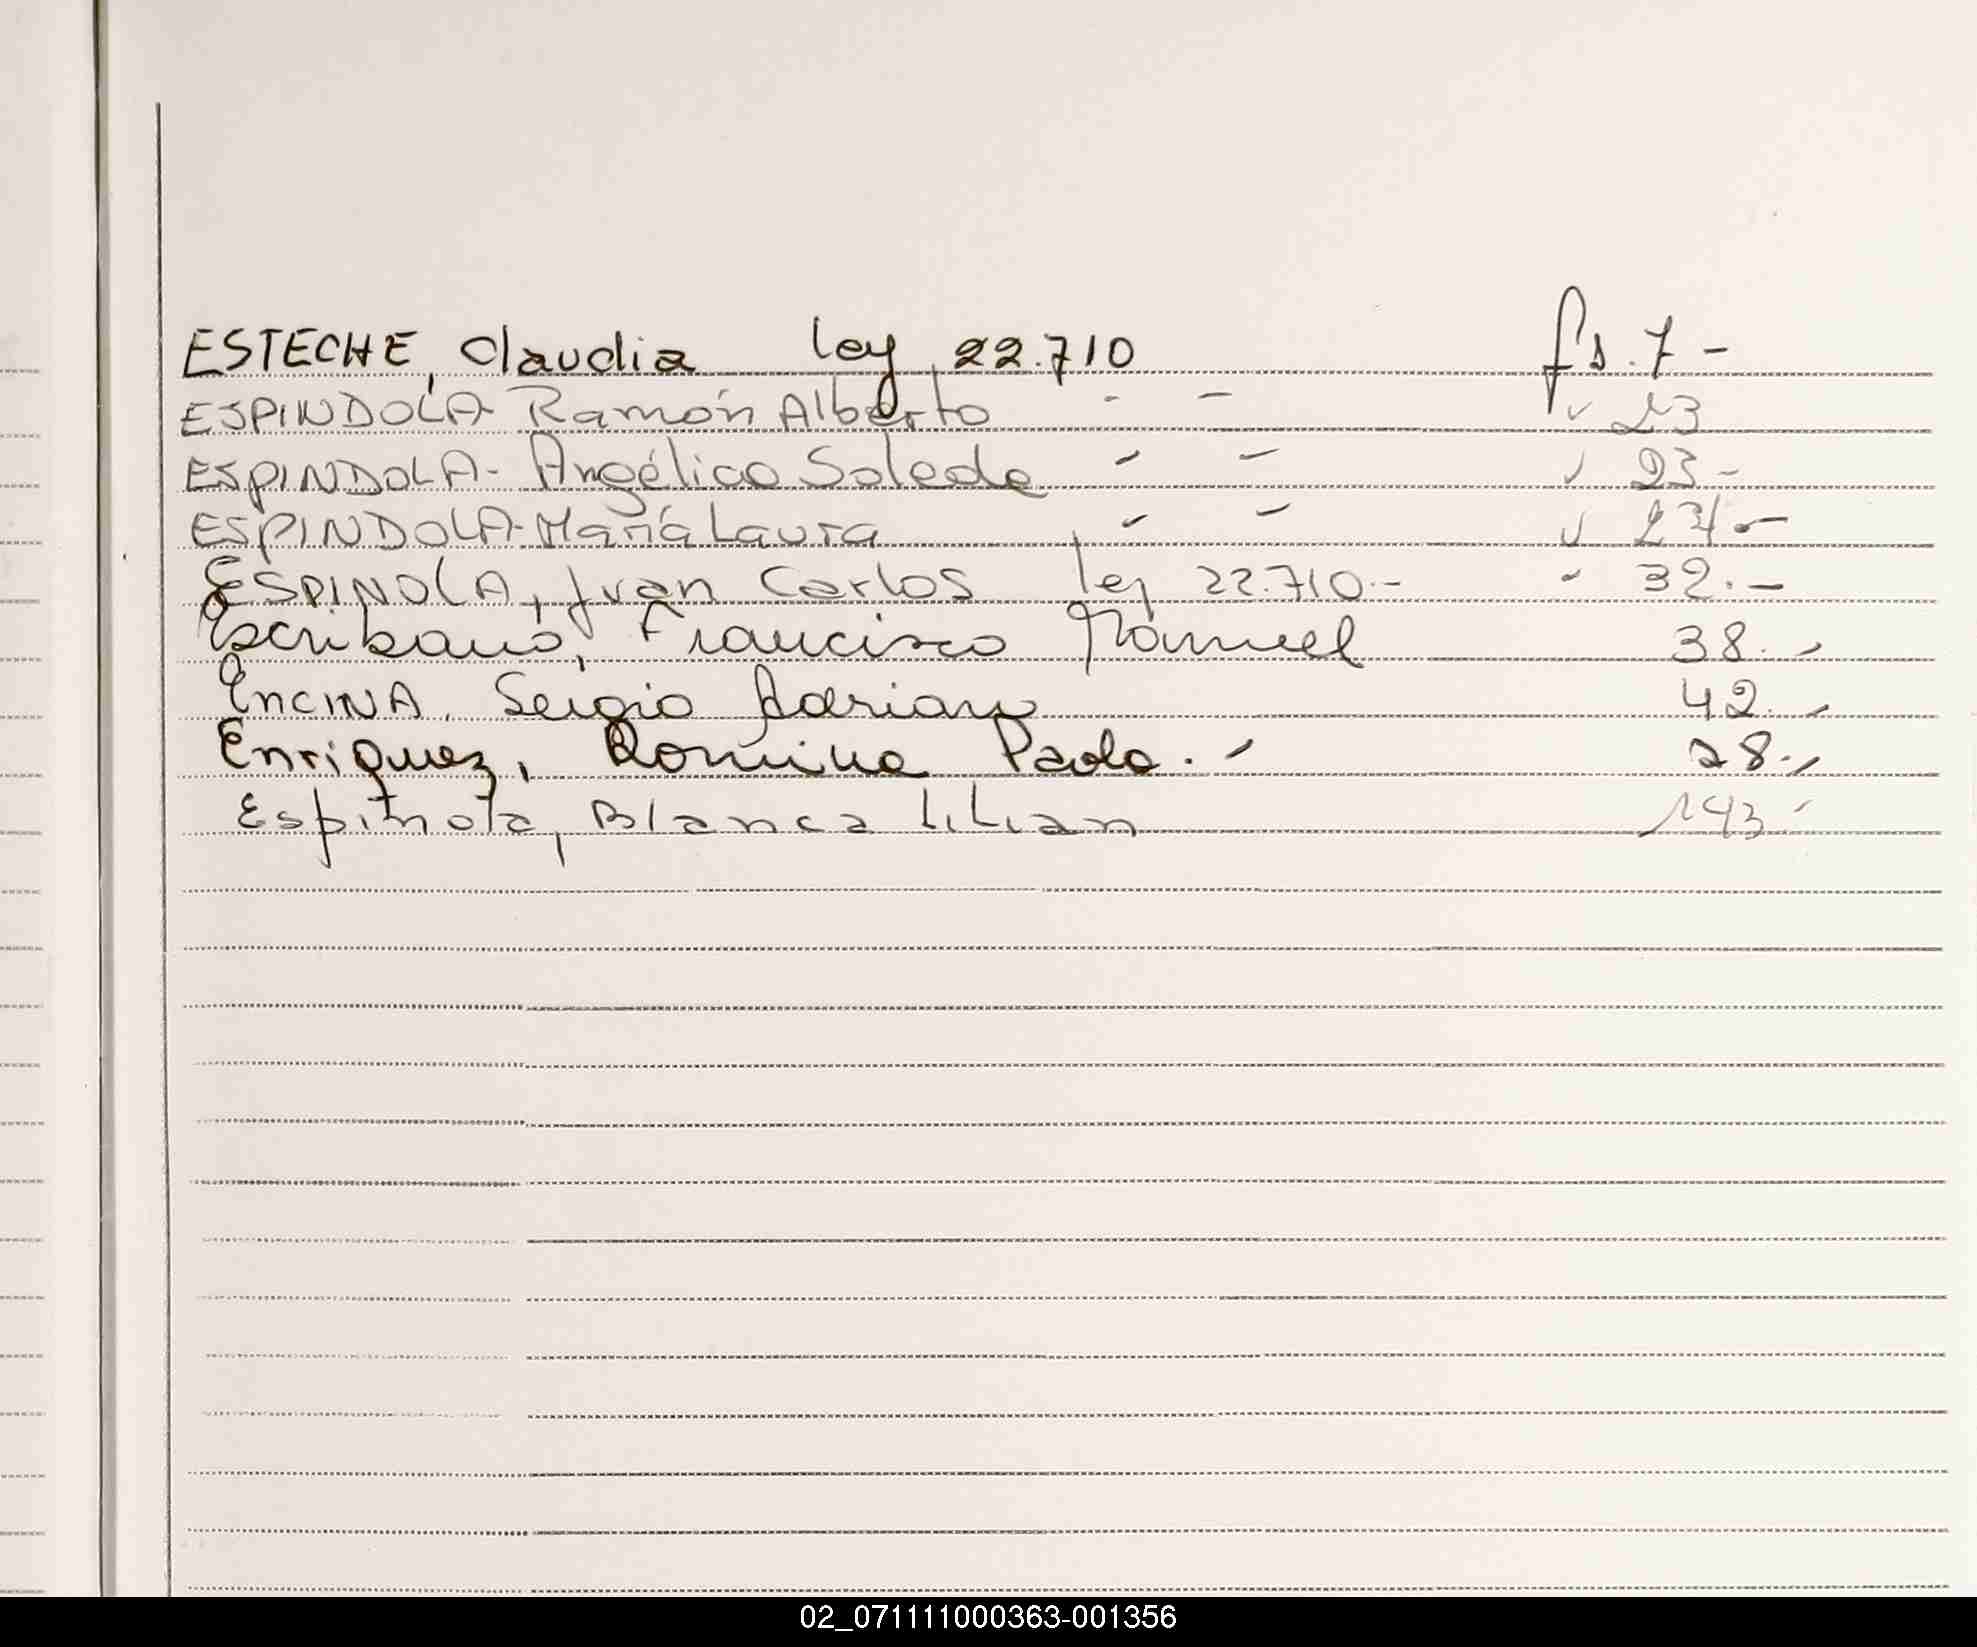 ESTECHE, Claudia ley 22.710 fs. 7 -
ESPINDOLA- Ramón Alberto - - 23
ESPINDOLA- Angélica Soleda - - 23 -
ESPINDOLA- María Laura - - -
ESPINOLA, Juan Carlos ley 22.710.- 32.-
Escribano, Francisco Manuel 38.-
ENCINA, Sergio Adrian 42.-
Enriquez, Romina Paola.- 28.-
Espinola, Blanca Lilian 143-
02_071111000363-001356